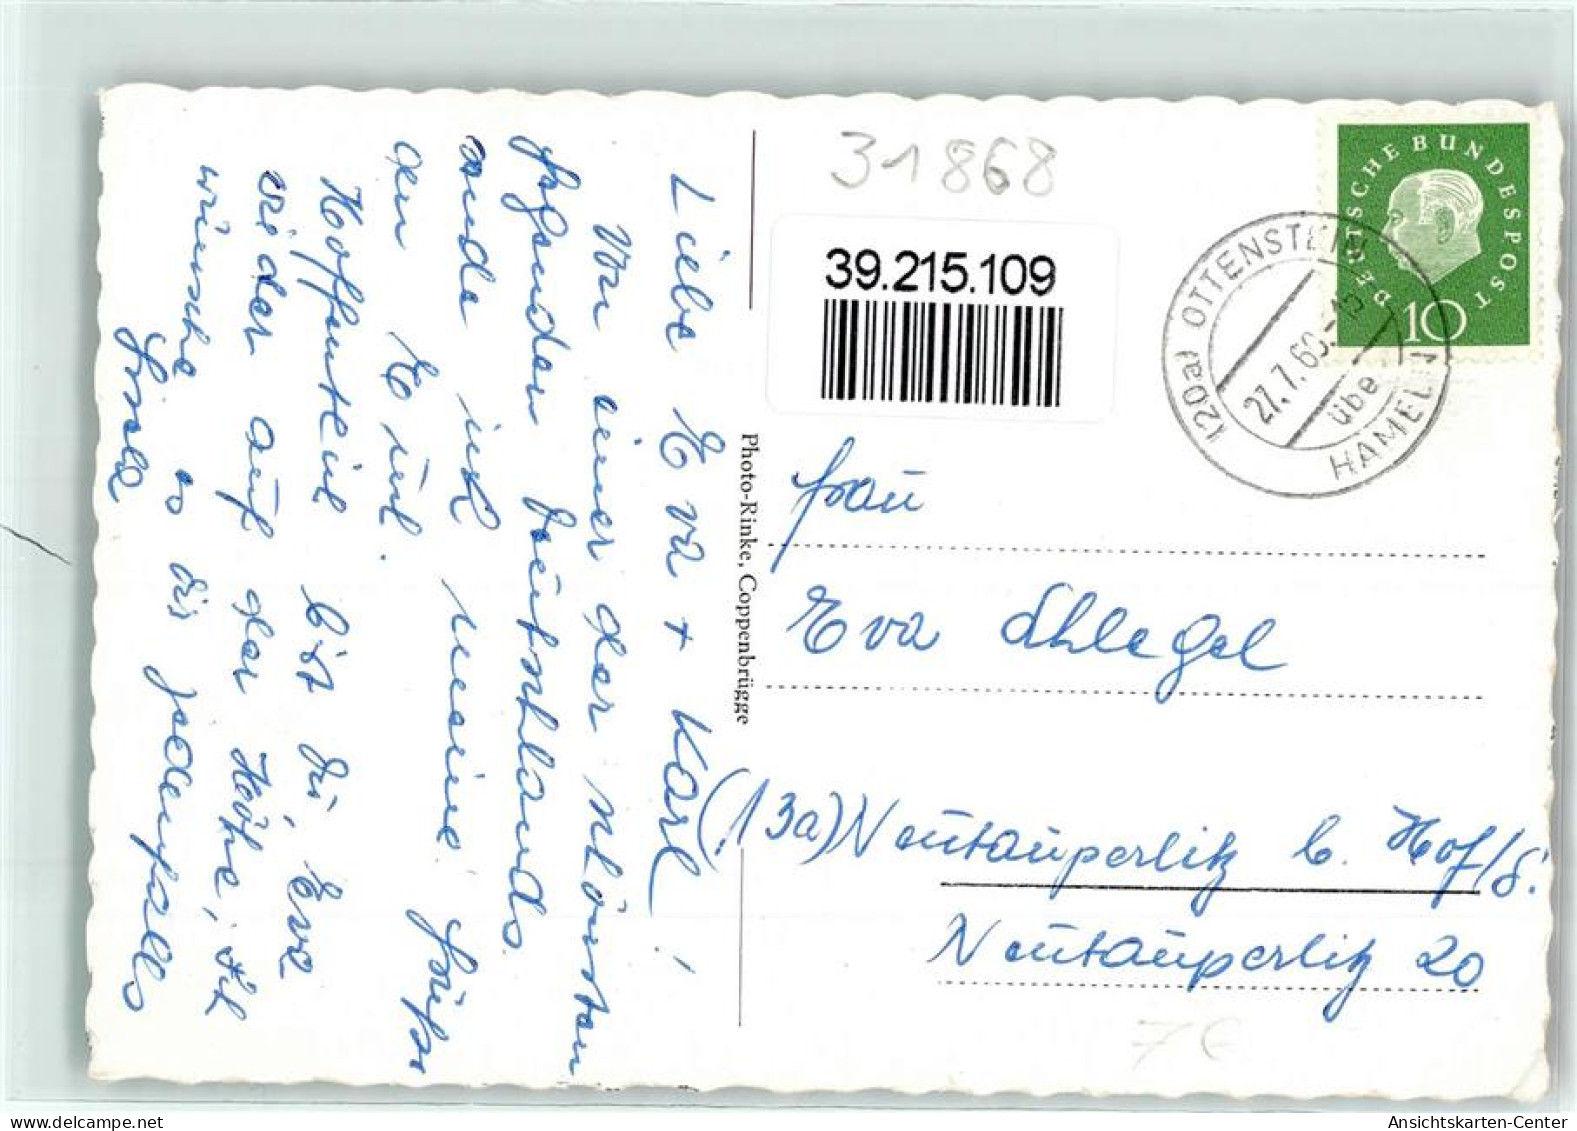 Liebe Eva + Karl!
Von einer der schönsten
Gegenden Deutschlands
sende ich meine Grüße
gen Euch.
Hoffentlich bist du, Eva
wieder auf der Höhe, ich
wünsche es dir jedenfalls
Photo-Rinke, Coppenbrügge
31868
39.215.109
DEUTSCHE BUNDESPOST
10
(20a) OTTENSTEIN
27.7.60
über
HAMELN
Frau
Eva Schlegel
(13a) Neutauperlitz b. Hof/S.
Neutauperlitz 20
7€
Ansichtskarten-Center